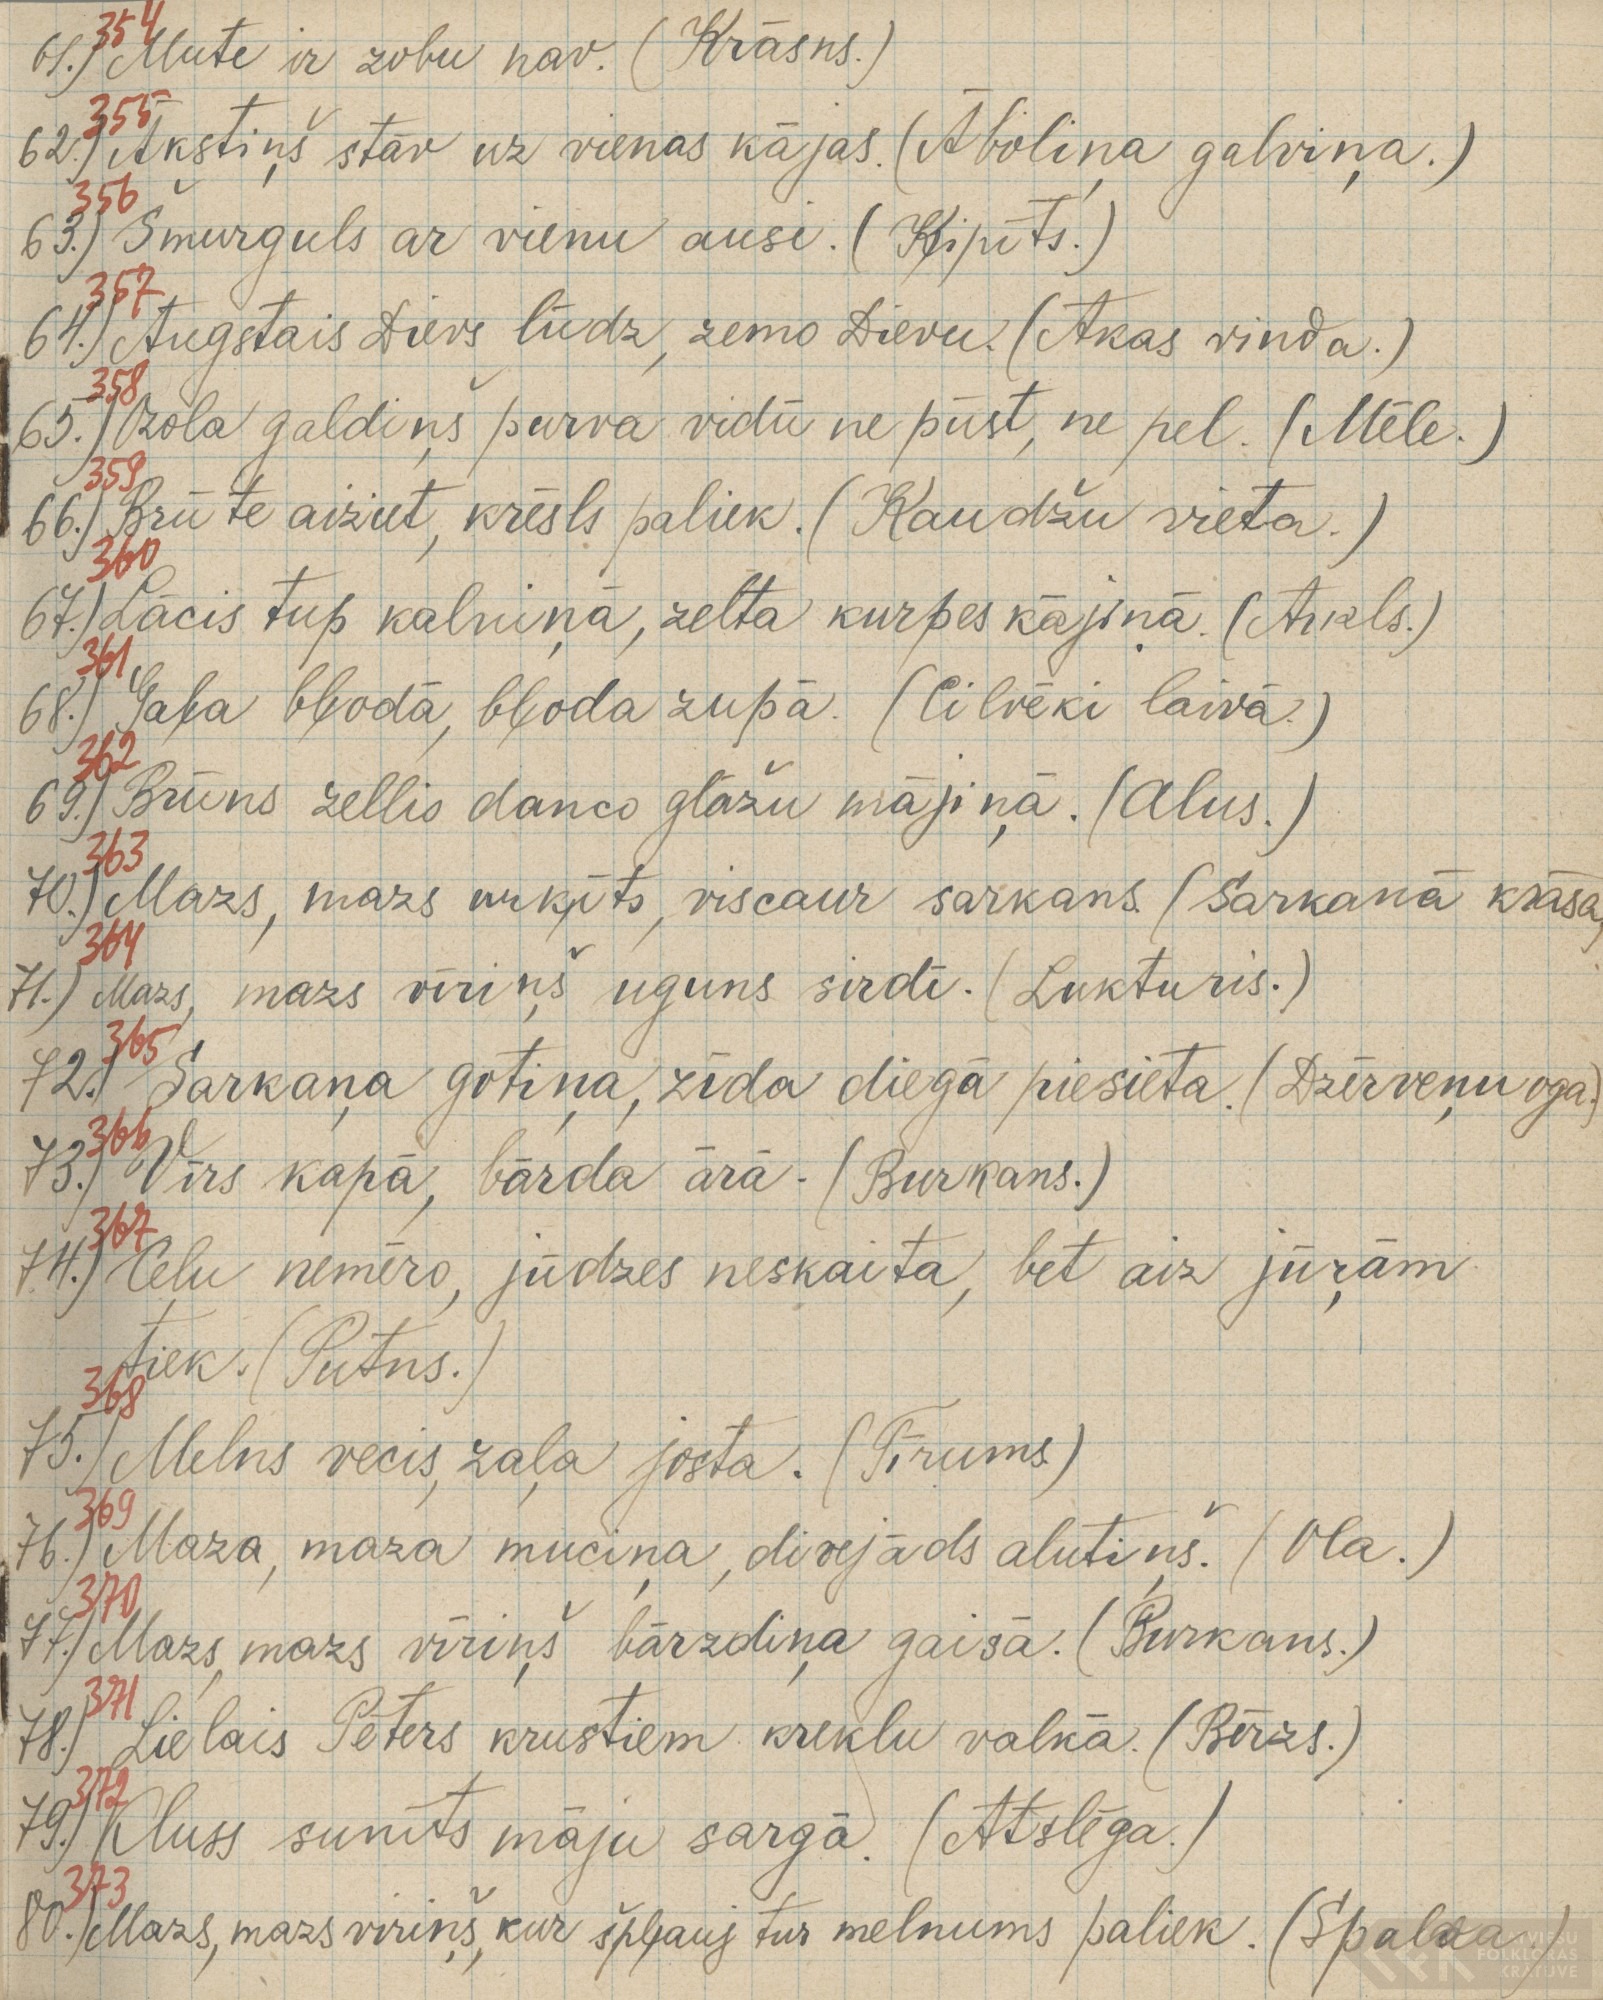 354
61.) Mute ir zobu nav. (Krāsns.)
355
62.) Ākstiņš stāv uz vienas kājas. (Āboliņa galviņa.)
356
63.) Šmurguls ar vienu ausi. (Ķipīts.)
357
64.) Augstais Dievs lūdz, zemo Dievu. (Akas vinda.)
358
65.) Ozola galdiņš purva vidū ne pūst, ne pel. (Mēle.)
359
66.) Brūte aiziet, krēsls paliek. (Kaudžu vieta.)
360
67.) Lācis tup kalniņā, zelta kurpes kājiņā. (Arkls.)
361
68.) Gaļa bļodā, bļoda zupā. (Cilvēki laivā.)
362
69.) Brūns zellis danco glāžu mājiņā. (Alus.)
363
70.) Mazs, mazs urķīts, viscaur sarkans. (Sarkanā krāsa,
364
71.) Mazs, mazs vīriņš uguns sirdī. (Lukturis.)
365
72.) Sarkaņa gotiņa, zīda diegā piesieta. (Dzērveņu oga.)
366
73.) Vīrs kapā, bārda ārā. (Burkans.)
367
74.) Ceļu nemēro, jūdzes neskaita, bet aiz jūŗām
tiek. (Putns.)
368
75.) Melns vecis, zaļa josta. (Tīrums.)
369
76.) Maza, maza muciņa, divejāds alutiņš. (Ola.)
370
77.) Mazs, mazs vīriņš bārzdiņa gaisā. (Burkans.)
371
78.) Lielais Pēters krustiem kreklu valkā. (Bērzs.)
372
79.) Kluss sunīts māju sargā. (Atslēga.)
373
80.) Mazs, mazs viriņš, kur špļauj tur melnums paliek. (Spalva.)
LATVIEŠU
FOLKLORAS
KRĀTUVE